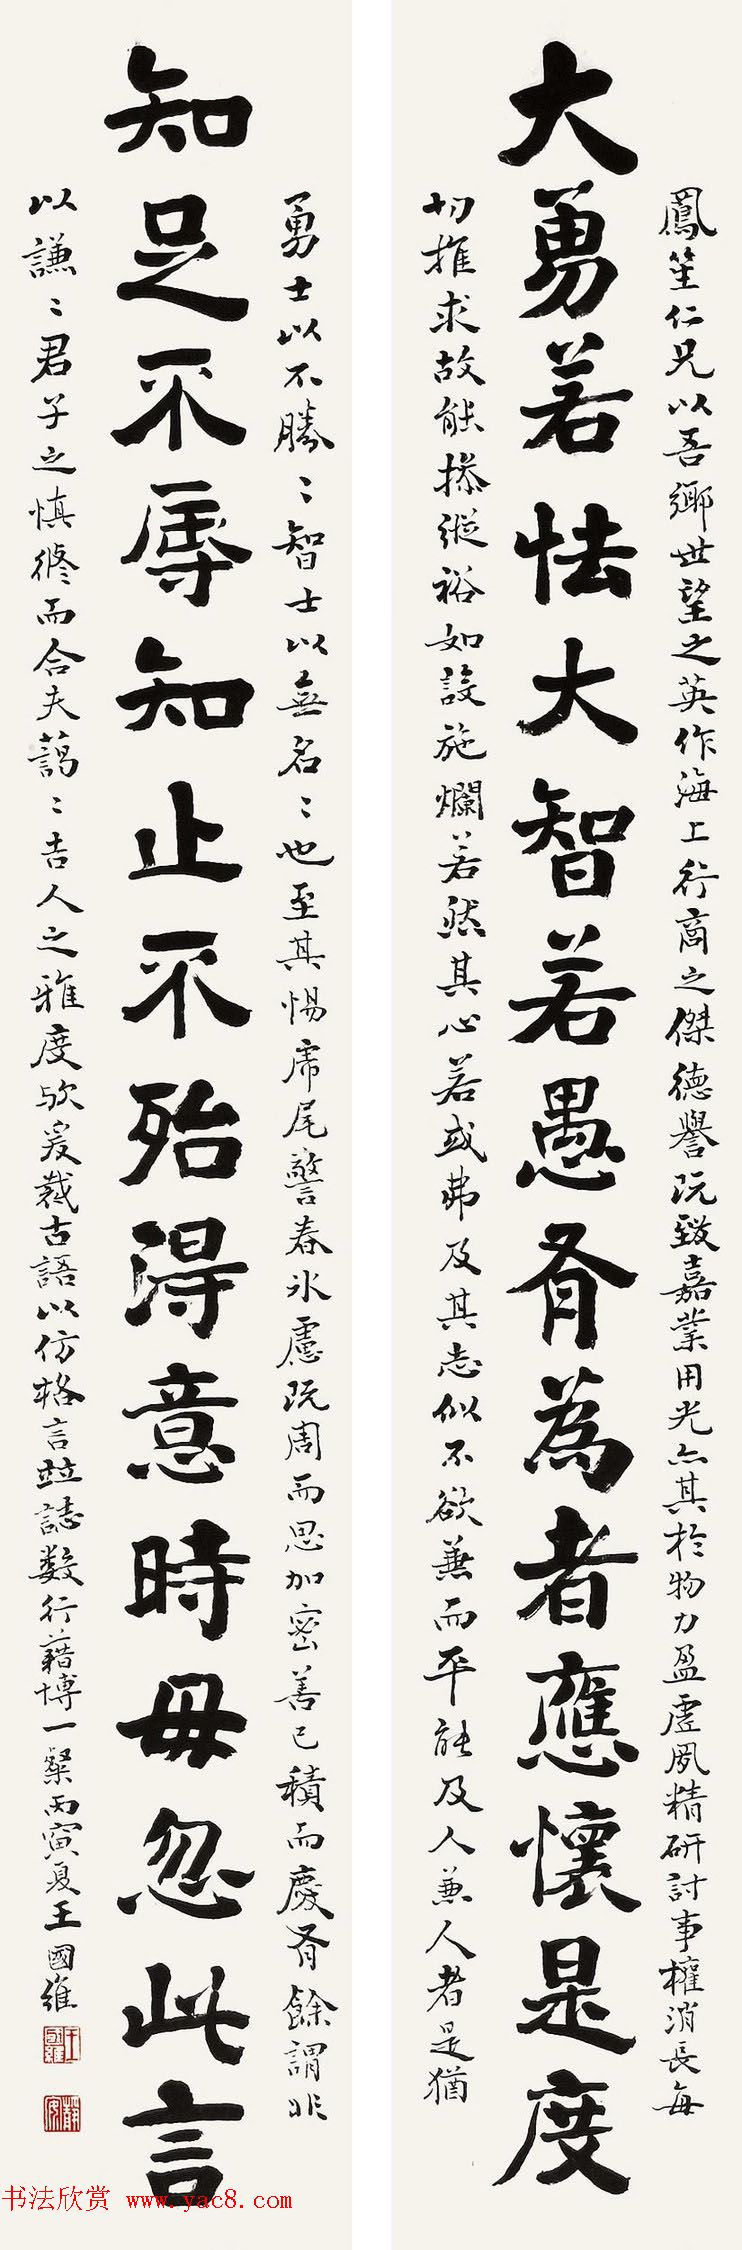 鳳笙仁兄以吾鄉世望之英作海上行商之傑德譽既致嘉業用光亦其於物力盈虛夙精研討事權消長每
大勇若怯大智若愚有為者應懷是度
切推求故能操縱裕如設施爛若然其心若或弗及其志似不欲兼而平能及人兼人者是猶
勇士以不勝〻智士以無名〻也至其惕虎尾警春冰慮既周而思加密善已積而慶有餘謂非
知足不辱知止不殆得意時毋忽此言
以謙〻君子之慎修而合夫藹〻吉人之雅度歟爰裁古語以仿格言並誌数行藉博一粲丙寅夏王國維
王國維
靜安
书法欣赏 www.yac8.com